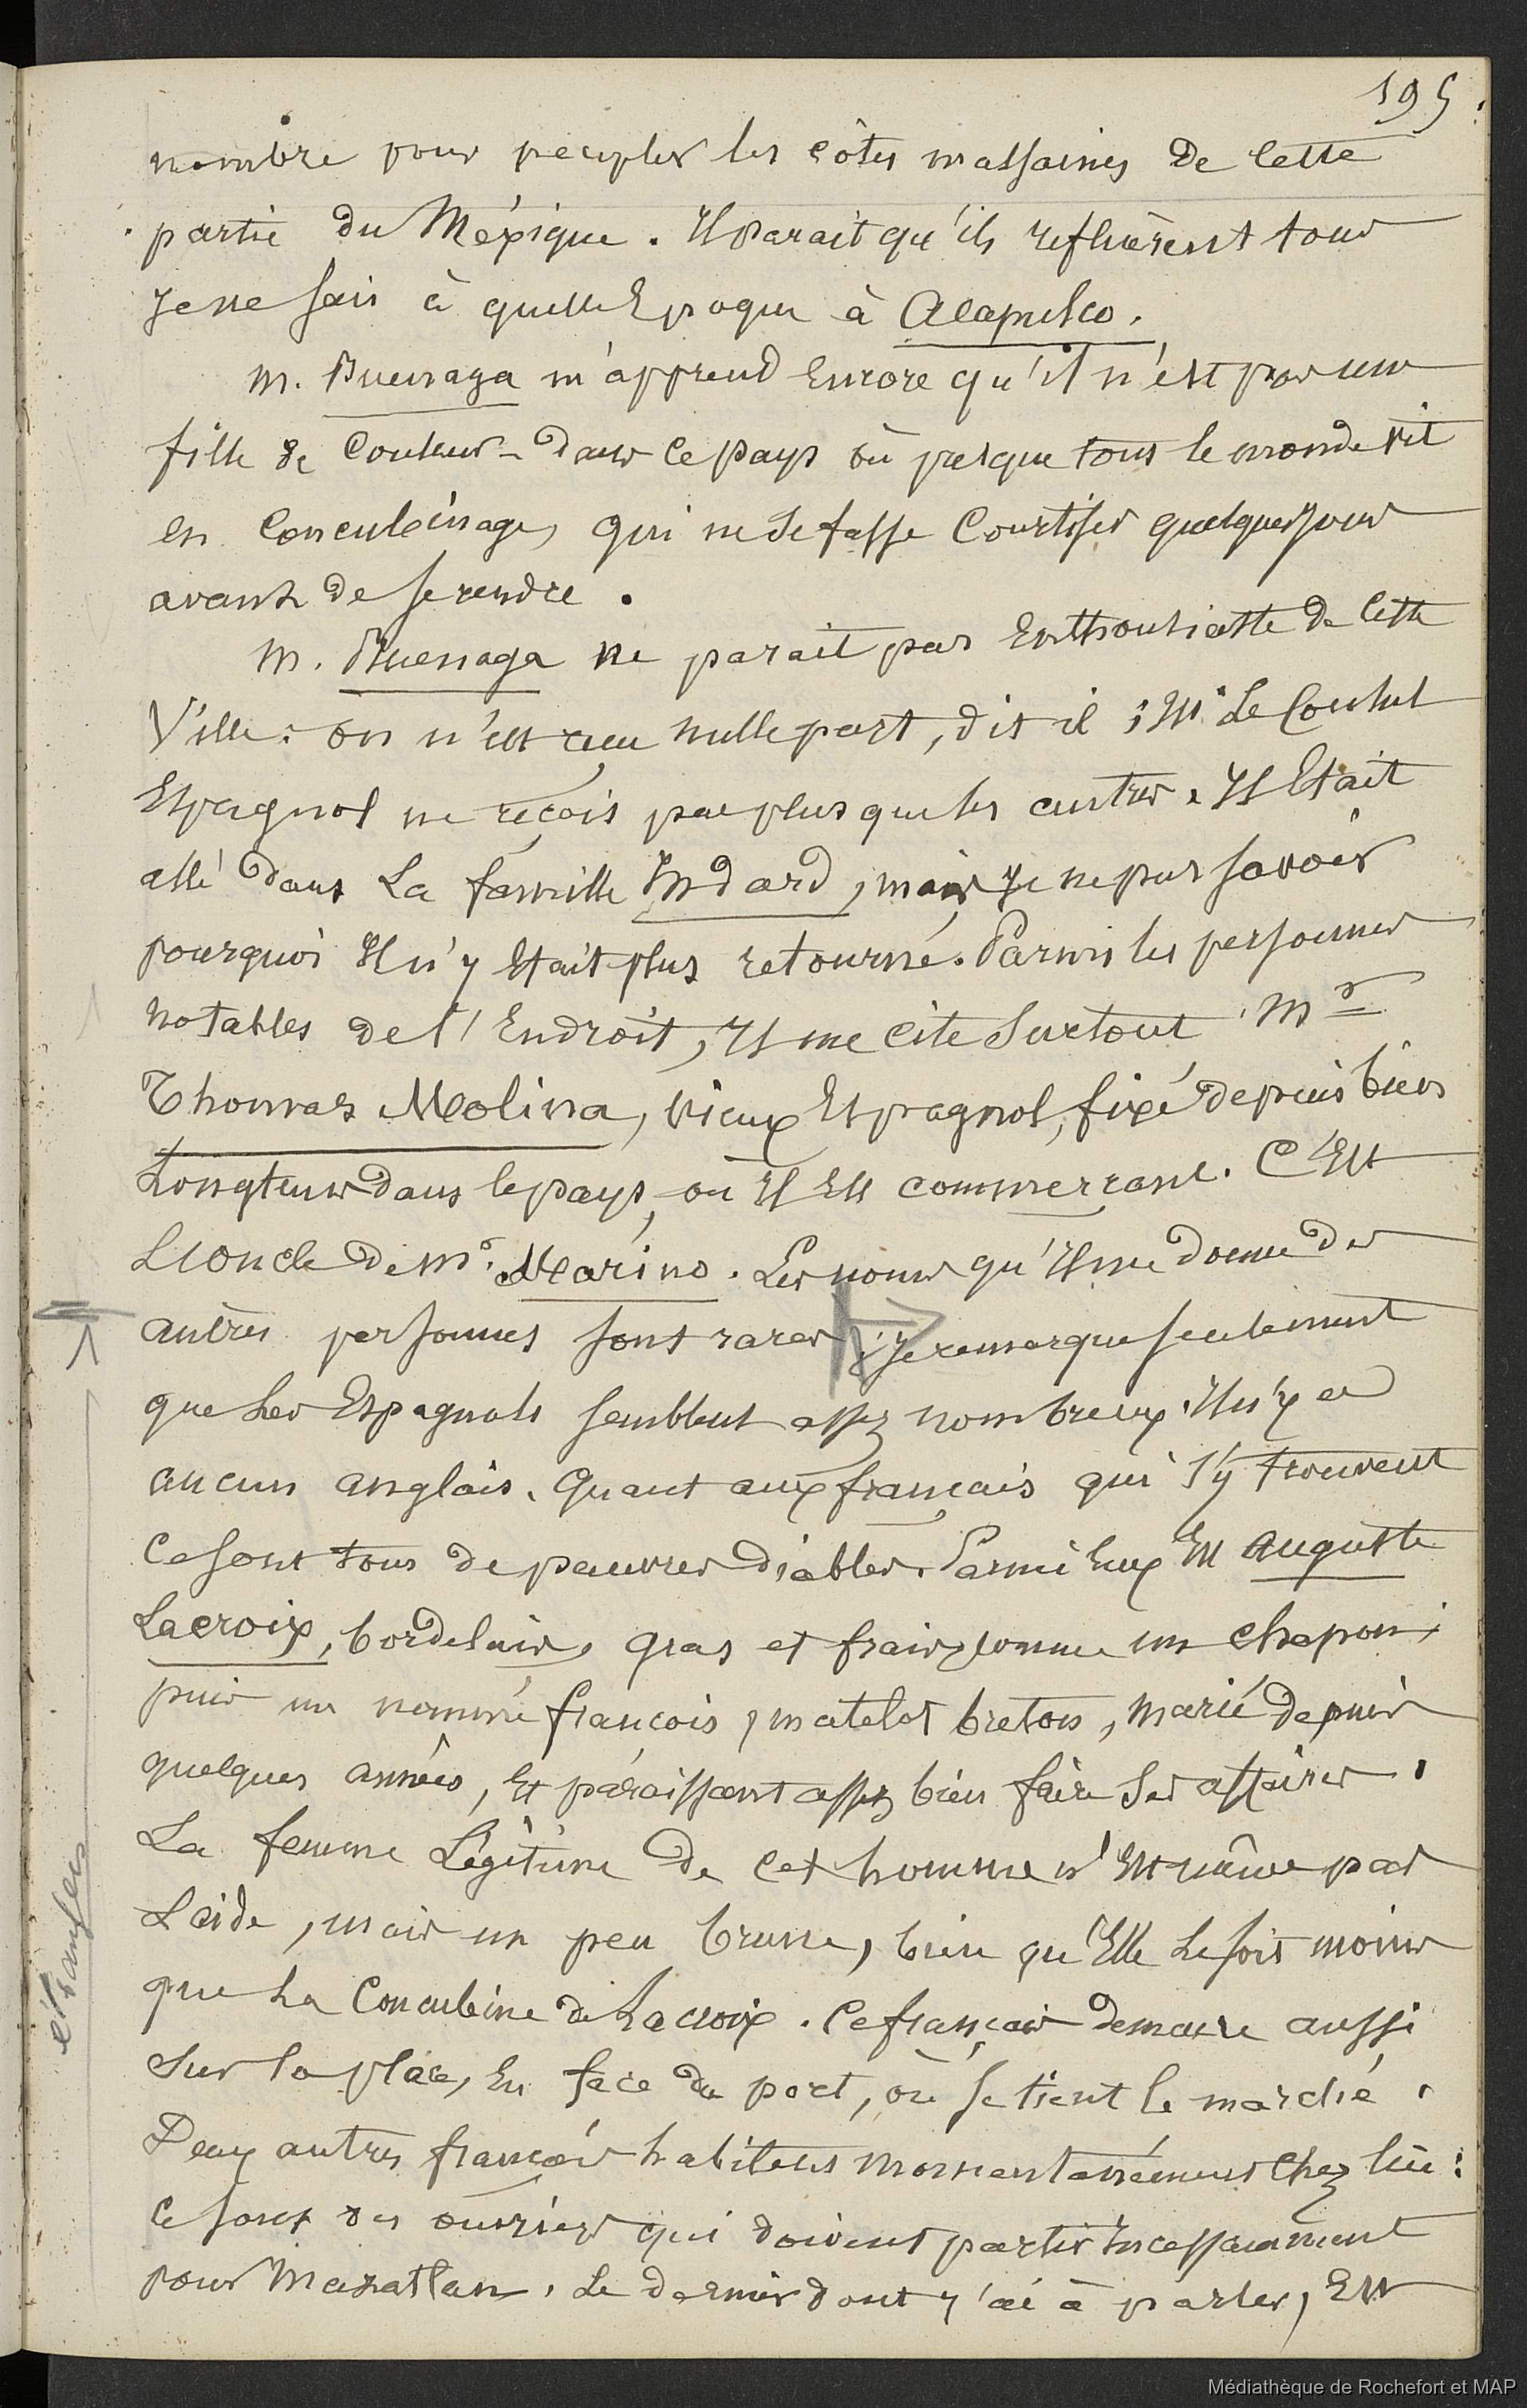 195.
nombre pour peupler les côtes malsaines de cette
partie du Méxique. Il parait qu'ils refluèrent tous
Je ne sais à quelle Epoque à Acapulco.
M. Buenaga m'apprend Encore qu'il n'est pas une
fille de Couleur - dans ce pays où presque tous le monde vit
en Concubinage, qui ne se fasse Courtiser quelques jours
avant de se rendre.
M. Buenaga ne parait pas Enthousiaste de cette
Ville: on n'est reçu nulle part, dit il; M. Le Consul
Espagnol ne reçois pas plus que les autres. Il Etait
allé dans La famille Indard, mais Je ne pus savoir
pourquoi Il n'y Etait plus retourné. Parmi les personnes
notables de l'Endroit, Il me cite Surtout Mr
Thomas Molina, vieux Espagnol, fixé depuis bien
Longtems dans le pays, où Il Est commerçant. C'Est
L'oncle de Mr. Marino. Les noms qu'Il me donne des
autres personnes sont rares; Je remarque seulement
que Les Espagnols semblent assez nombreux. Il n'y a
aucun anglais. Quant aux français qui s'y trouvent
Ce sont tous de pauvres diables. Parmi Eux Est Auguste
Lacroix, bordelais, gras et frais comme un chapon;
puis un nommé françois, matelot breton, marié depuis
quelques années, Et paraissant assez bien faire Ses affaires.
La femme Légitime de cet homme n'Est même pas
Laide, mais un peu brune, bien qu'Elle Le soit moins
que La Concubine de Lacroix. Ce français demeure aussi
Sur la place, En face du port, où se tient le marché.
Deux autres français habitent momentanément chez lui:
Ce sont des ouvriers qui doivent partir Incessamment
pour Mazatlan. Le dernier dont j'ai à parler, Est
étrangers
Médiathèque de Rochefort et MAP